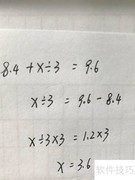 8.4 + x÷3 = 9.6
x÷3 = 9.6 - 8.4
x÷3×3 = 1.2×3
x = 3.6
软件技巧